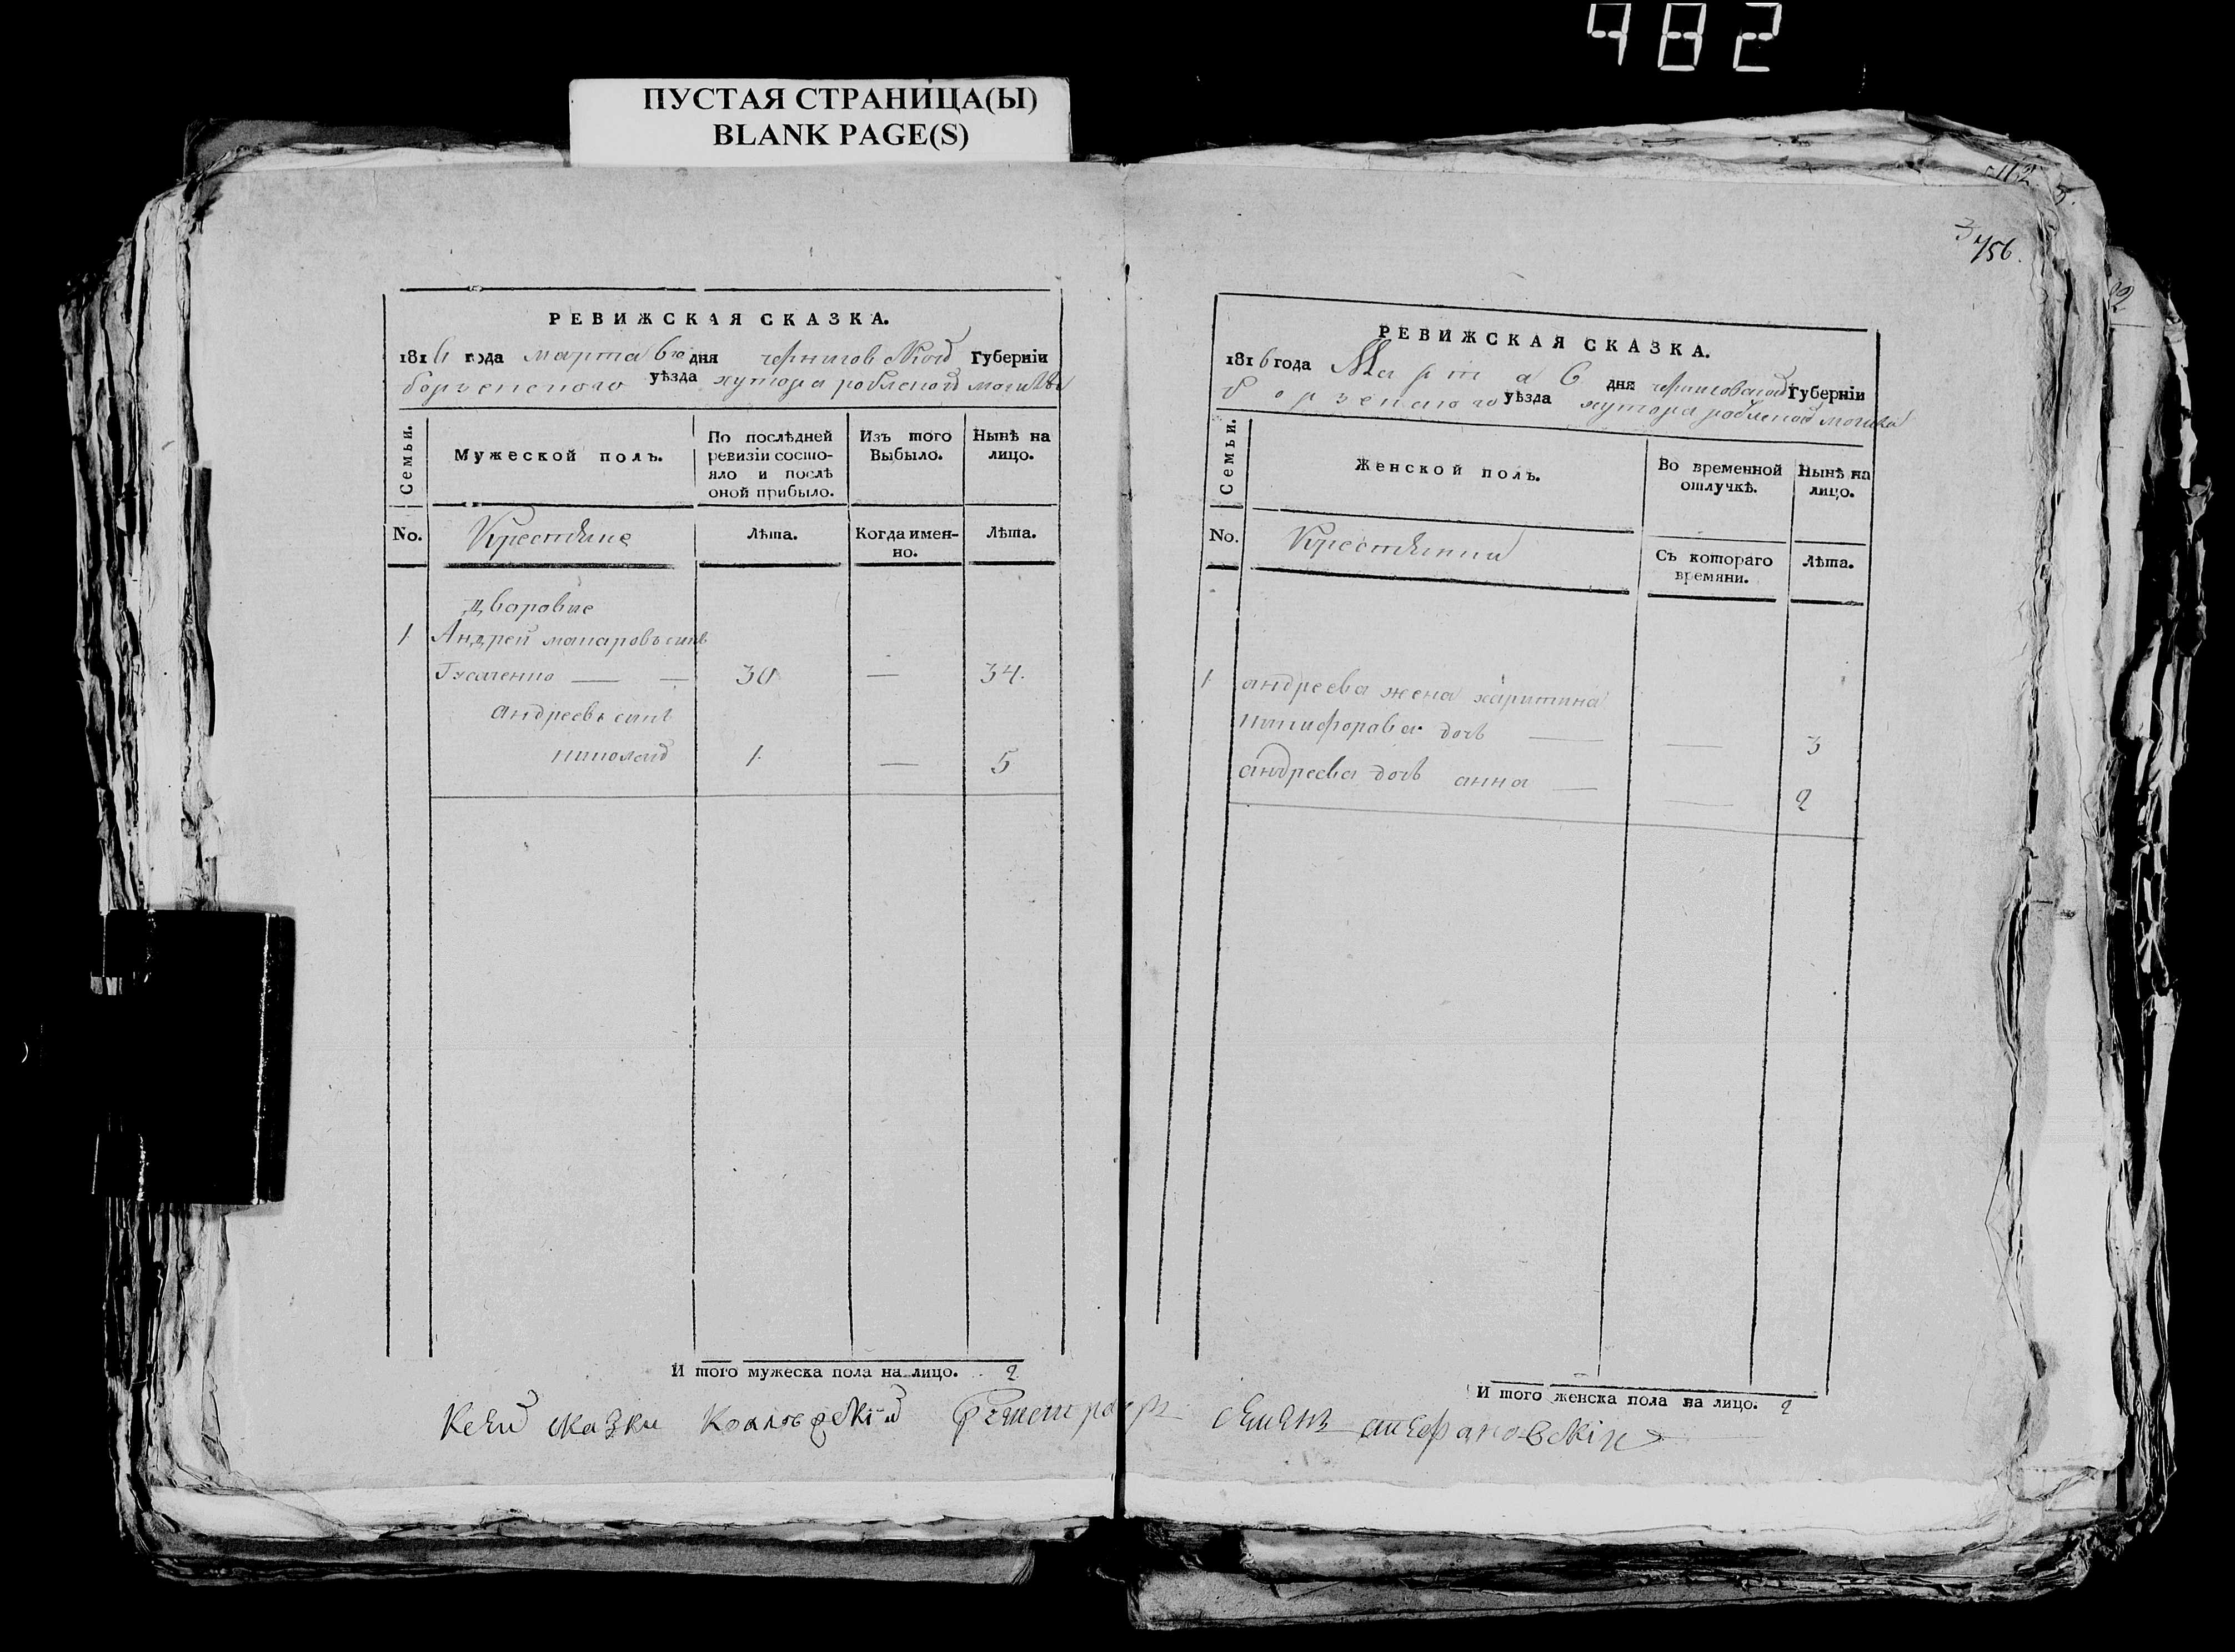 482
ПУСТАЯ СТРАНИЦА(Ы)
BLANK PAGE(S)
РЕВИЖСКАЯ СКАЗКА.
1816 года марта 6го дня черниговской Губерніи
борзенского уѣзда хутора робленой могилы
Семьи.
Мужеской полъ.
По послѣдней ревизіи состояло и послѣ оной прибыло.
Изъ того Выбыло.
Нынѣ на лицо.
No.
Крестьяне
Лѣта.
Когда именно.
Лѣта.
дворовые
1 Андрей макаровъ синъ
Гусаченко — — 30 — 34.
андреевъ синъ
николай 1. — 5
И того мужеска пола на лицо. 2
756.
РЕВИЖСКАЯ СКАЗКА.
1816 года Марта 6 дня черниговской Губерніи
борзенского уѣзда хутора робленой могили
Семьи.
Женской полъ.
Во временной отлучкѣ.
Нынѣ на лицо.
No.
Крестьянки
Съ котораго времяни.
Лѣта.
1 андреева жена харитина
никифорова дочь — — 3
андреева дочь анна — — 2
И того женска пола на лицо. 2
Кеей сказки Регистраторъ семенъ стефановскій